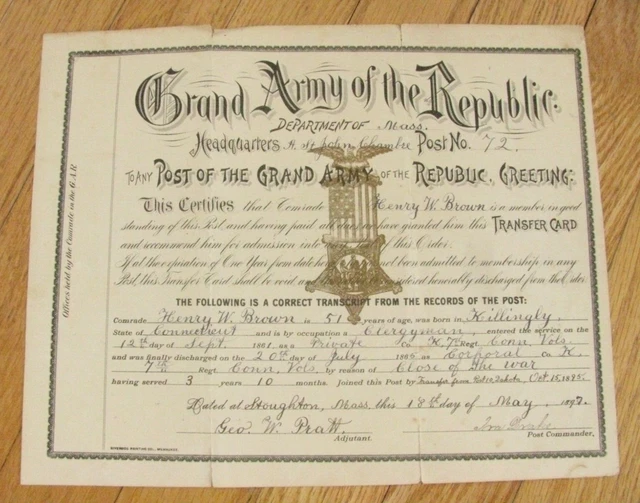 Grand Army of the Republic.
DEPARTMENT OF Mass.
Headquarters A. St. John Chambre Post No. 72.
TO ANY POST OF THE GRAND ARMY OF THE REPUBLIC, GREETING:
This Certifies that Comrade Henry W. Brown is a member in good
standing of this Post and having paid all dues, we have granted him this TRANSFER CARD
and recommend him for admission into any of this Order.
If at the expiration of One Year from date he not been admitted to membership in any
Post, this Transfer Card shall be void honorably discharged from the Order.
THE FOLLOWING IS A CORRECT TRANSCRIPT FROM THE RECORDS OF THE POST:
Comrade Henry W. Brown is 51 years of age, was born in Killingly,
State of Connecticut and is by occupation a Clergyman, entered the service on the
12th day of Sept. 1861 as a Private Co. K, 7th Regt. Conn. Vols.
and was finally discharged on the 20th day of July 1865 as Corporal Co. K.
7th Regt. Conn. Vols. by reason of Close of the war
having served 3 years 10 months. Joined this Post by Transfer from Oct. 15, 1895.
Dated at Stoughton, Mass. this 18th day of May, 1897.
Geo. W. Pratt.
Adjutant.
Drake
Post Commander,
Offices held by the Comrade in the G.A.R.